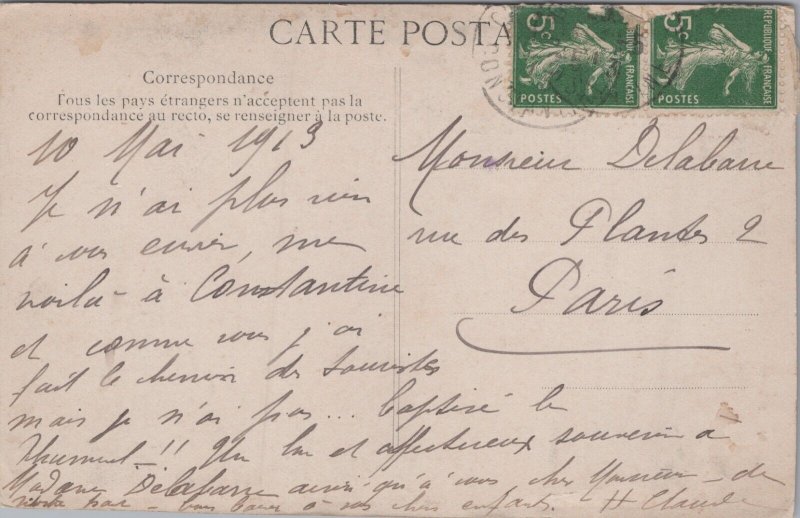 CARTE POSTA
Correspondance
Tous les pays étrangers n'acceptent pas la
correspondance au recto, se renseigner à la poste.
5c
POSTES
REPUBLIQUE FRANÇAISE
5c
POSTES
REPUBLIQUE FRANÇAISE
10 Mai 1913
Je n'ai plus rien
à vous envier, me
voilà à Constantine
et comme vous j'ai
fait le chemin des touristes
mais je n'ai pas... baptisé le
Rhummel!! Un bon et affectueux souvenir à
Madame Delabarre ainsi qu'à vous cher Monsieur de
notre part à vos chers enfants. H Claude
Monsieur Delabarre
rue des Plantes 2
Paris